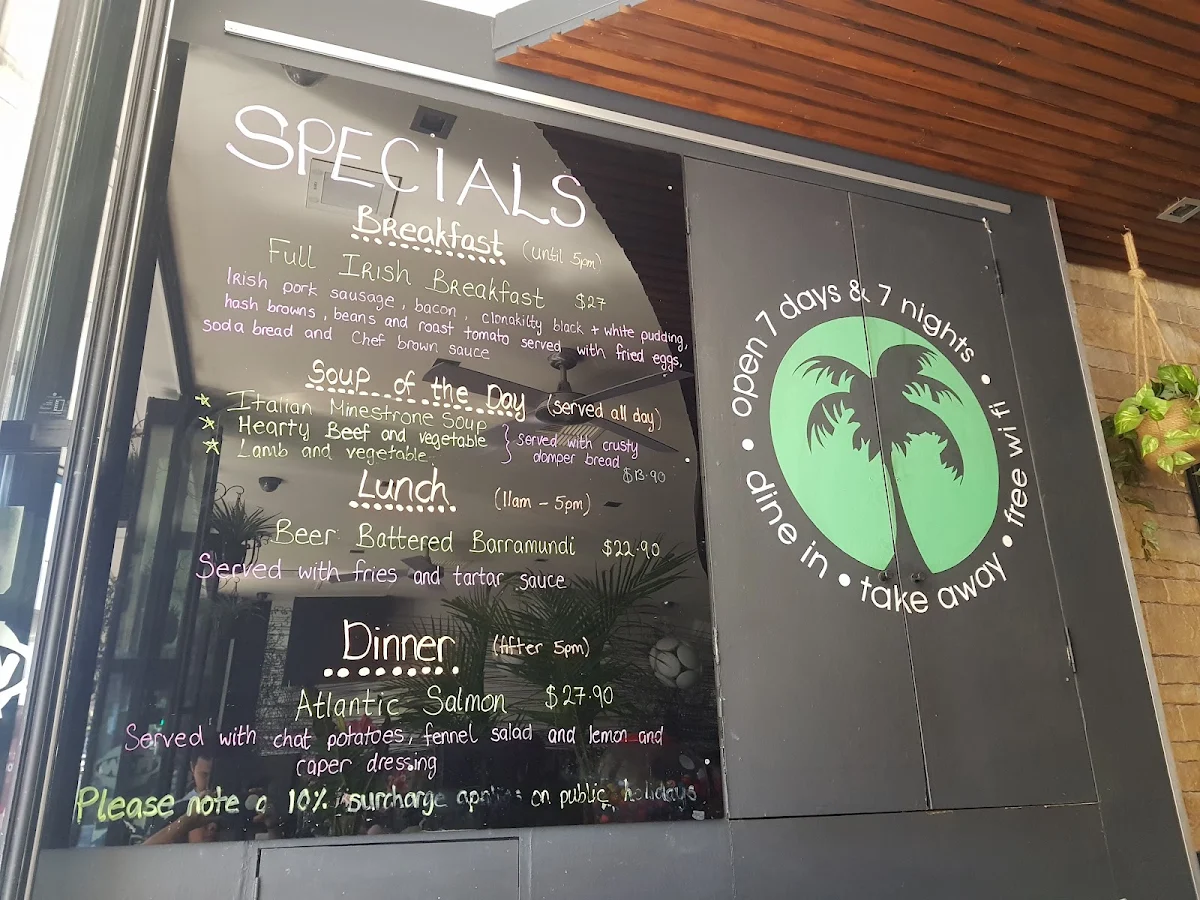 SPECiALS
Breakfast (until 5pm)
Full Irish Breakfast $27
Irish pork sausage, bacon, clonakilty black + white pudding,
hash browns, beans and roast tomato served with fried eggs,
soda bread and Chef brown sauce
Soup of the Day (served all day)
Italian Minestrone Soup
Hearty Beef and vegetable
Lamb and vegetable.
served with crusty
damper bread
$13.90
Lunch (11am - 5pm)
Beer Battered Barramundi $22.90
Served with fries and tartar sauce
Dinner (After 5pm)
Atlantic Salmon $27.90
Served with chat potatoes, fennel salad and lemon and
caper dressing
Please note a 10% surcharge applies on public holidays
open 7 days & 7 nights • free wi fi • take away • dine in •